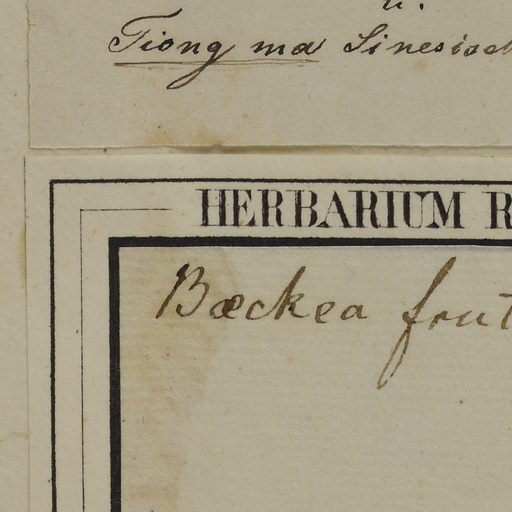 Tiong ma Sinesisch
HERBARIUM R
Bæckea frut